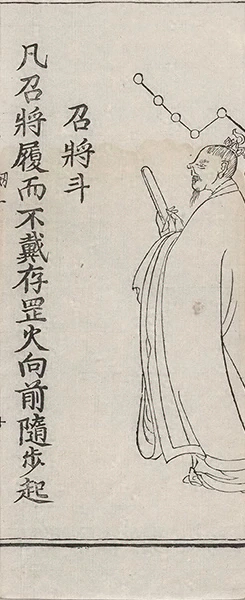 召將斗
凡召將履而不戴存罡火向前隨步起